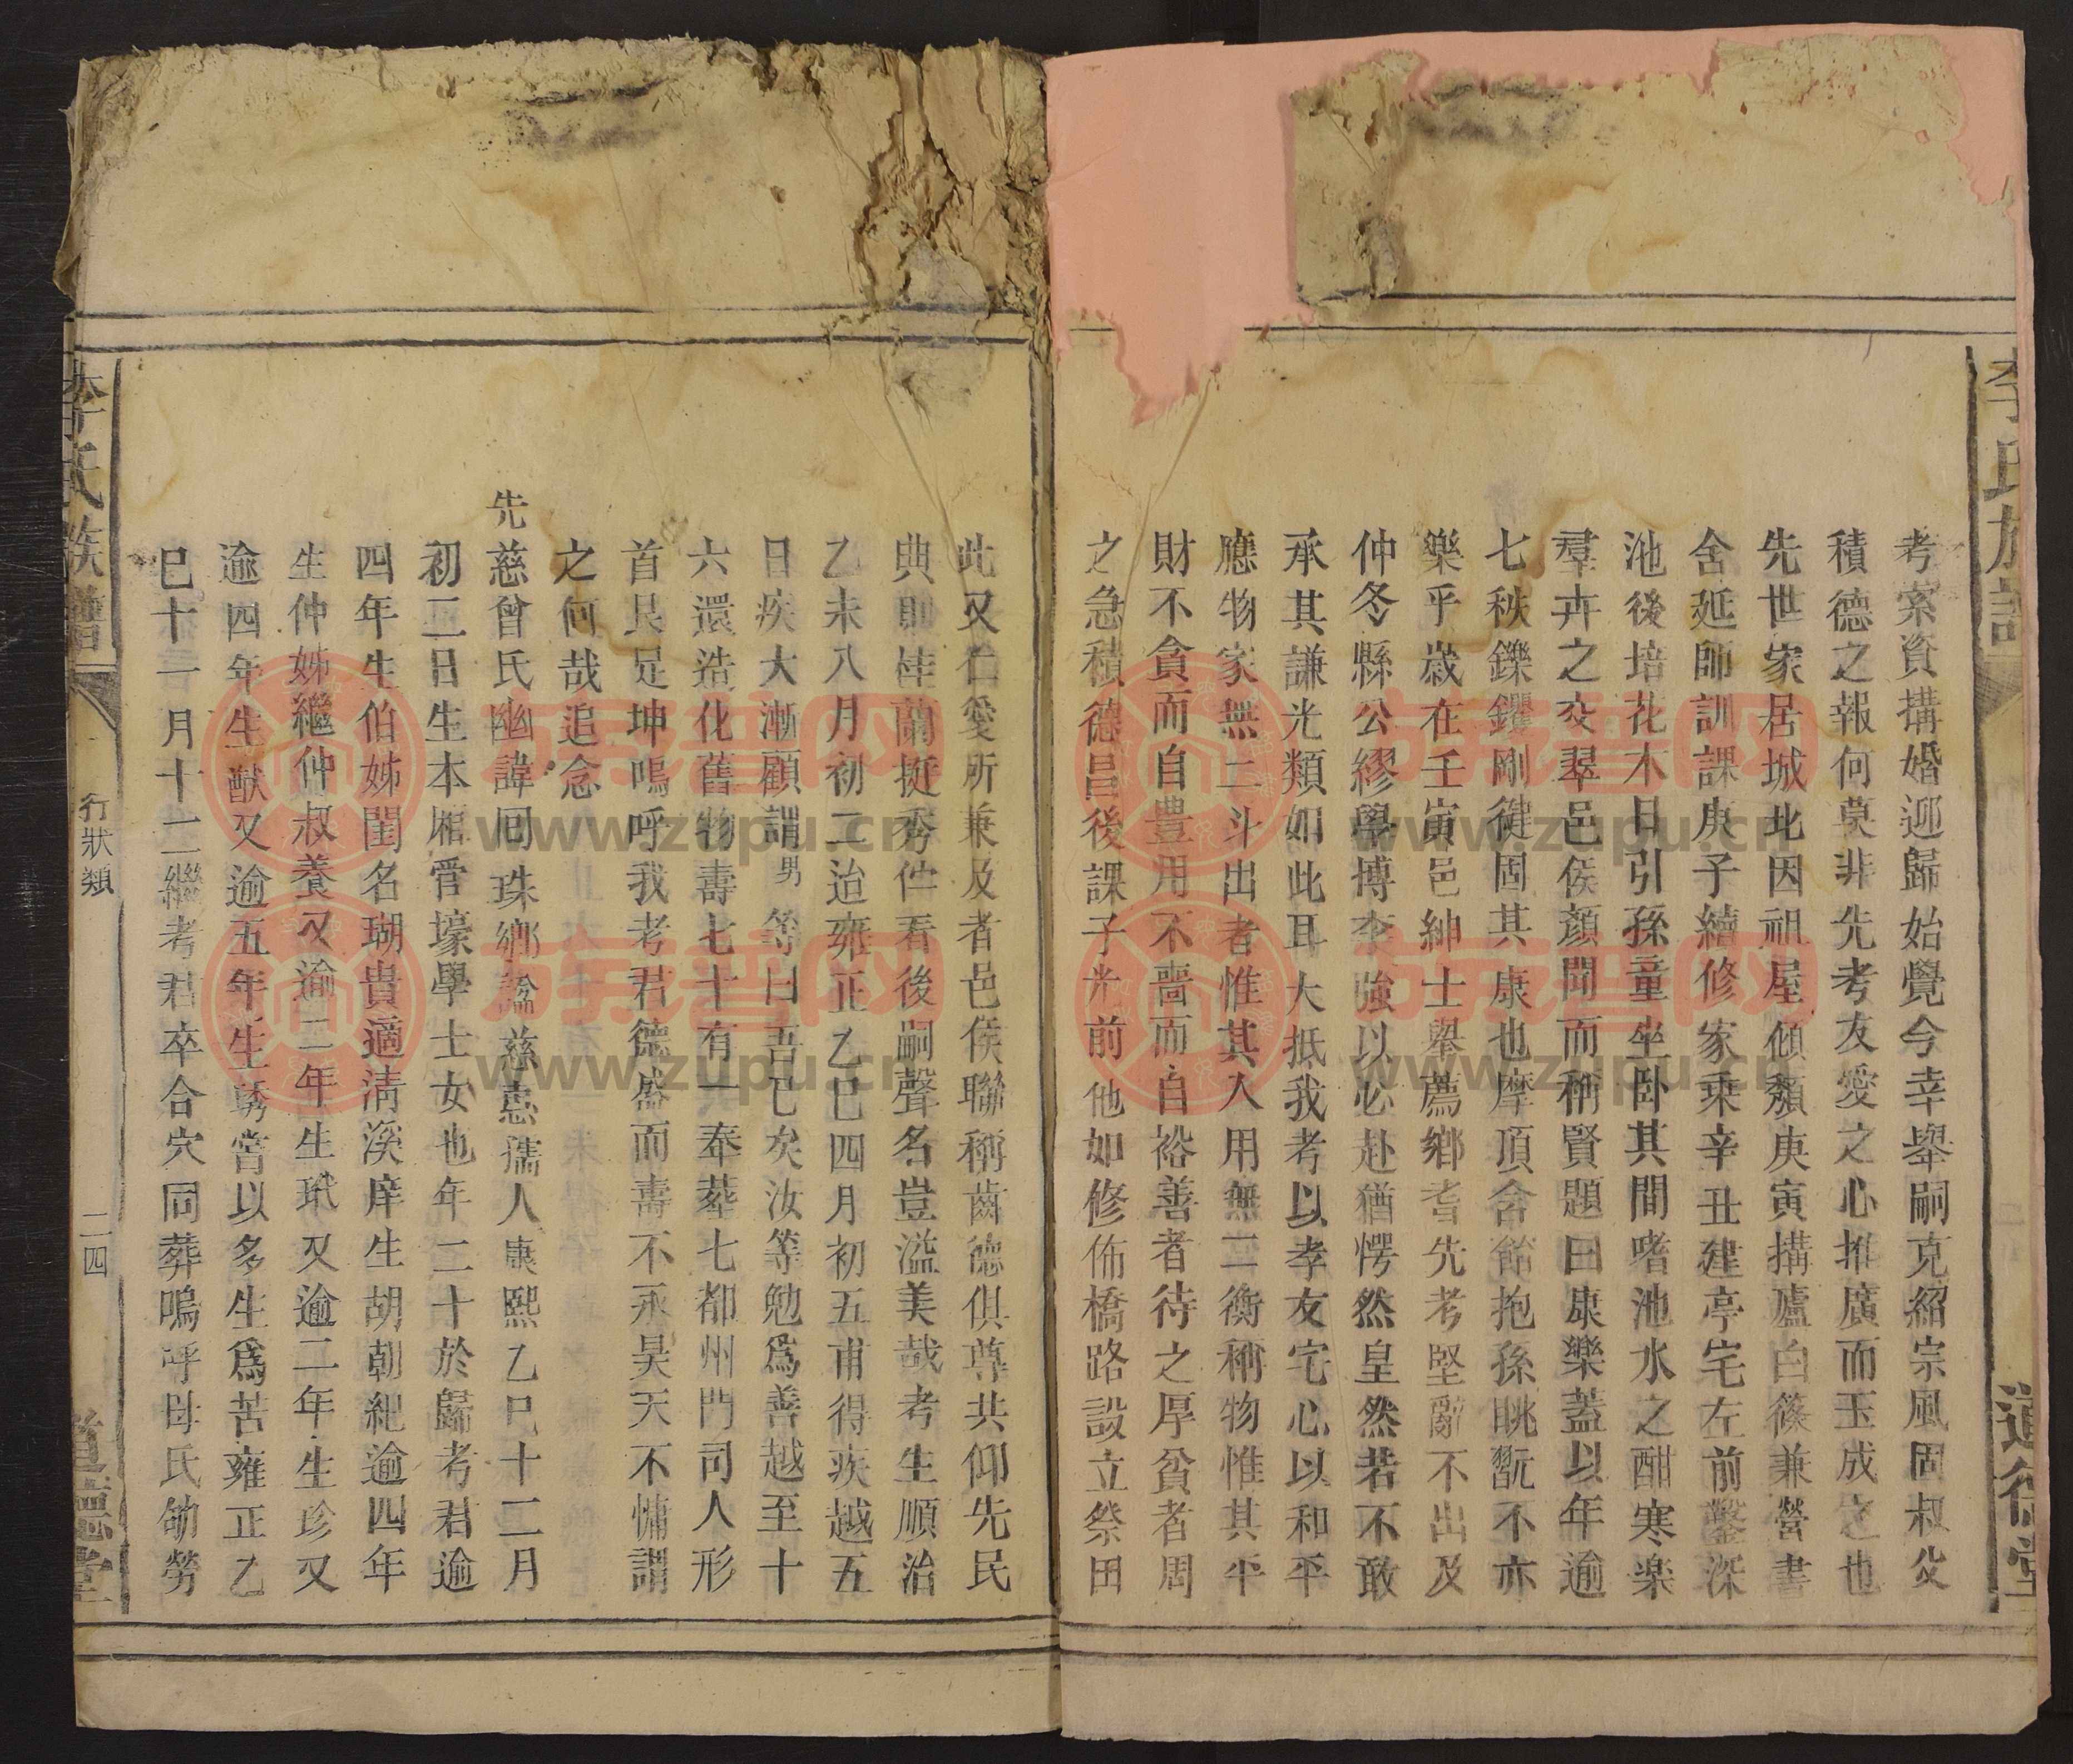 考案資搆婚迎歸始覺今幸舉嗣克紹宗風固叔父
積德之報何莫非先考友愛之心推廣而玉成之也
先世家居城北因祖屋傾頹庚寅搆廬白篠兼營書
舍延師訓課庚子續修家乗辛丑建亭宅左前鑿深
池後培花木日引孫童坐卧其間嗜池水之酣寒楽
羣卉之交翠邑侯顏聞而稱賢題曰康樂蓋以年逾
七秩鑠钁剛健固其康也摩頂含飴抱孫眺翫不亦
樂乎歲在壬寅邑紳士舉薦鄉耆先考堅辭不出及
仲冬縣公繆學博李強以必赴猶愕然皇然若不敢
承其謙光類如此耳大抵我考以孝友宅心以和平
應物家無二斗出者惟其入用無二衡稱物惟其平
財不貪而自豊用不嗇而自裕善者待之厚貧者周
之急積德昌後課子光前他如修佈橋路設立祭田
此又仁愛所兼及者邑侯聯稱齒德俱尊共仰先民
典則桂蘭挺秀伫看後嗣聲名豈溢美哉考生順治
乙未八月初二迨雍正乙巳四月初五甫得疾越五
日疾大漸顧謂男等曰吾已矣汝等勉爲善越至十
六還造化舊物壽七十有一奉葬七都州門司人形
首艮足坤嗚呼我考君德盛而壽不永昊天不慵謂
之何哉追念
先慈曾氏幽諱囘珠鄉諡慈惠孺人康熙乙巳十二月
初二日生本厢管壕學士女也年二十於歸考君逾
四年生伯姊閨名瑚貴適清溪庠生胡朝紀逾四年
生仲姊繼仲叔養又逾二年生玳又逾二年生珍又
逾四年生猷又逾五年生琇嘗以多生爲苦雍正乙
巳十一月十二繼考君卒合穴同葬嗚呼母氏劬勞
李氏族譜
行狀類
二四
道德堂
李氏族譜
道德堂